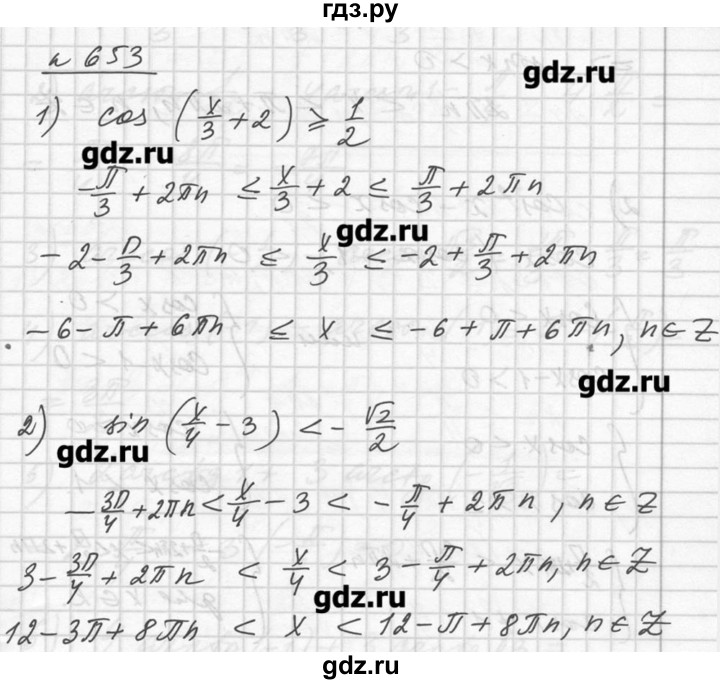 гдз.ру
n 653
gdz.ru
1) cos (x/3 + 2) ⩾ 1/2
gdz.ru
-π/3 + 2πn ≤ x/3 + 2 ≤ π/3 + 2πn
gdz.ru
-2 - π/3 + 2πn ≤ x/3 ≤ -2 + π/3 + 2πn
-6 - π + 6πn ≤ x ≤ -6 + π + 6πn, n ∈ Z
gdz.ru
2) sin (x/4 - 3) < -√2/2
gdz.ru
-3π/4 + 2πn < x/4 - 3 < -π/4 + 2πn, n ∈ Z
3 - 3π/4 + 2πn < x/4 < 3 - π/4 + 2πn, n ∈ Z
gdz.ru
12 - 3π + 8πn < x < 12 - π + 8πn, n ∈ Z
gdz.ru